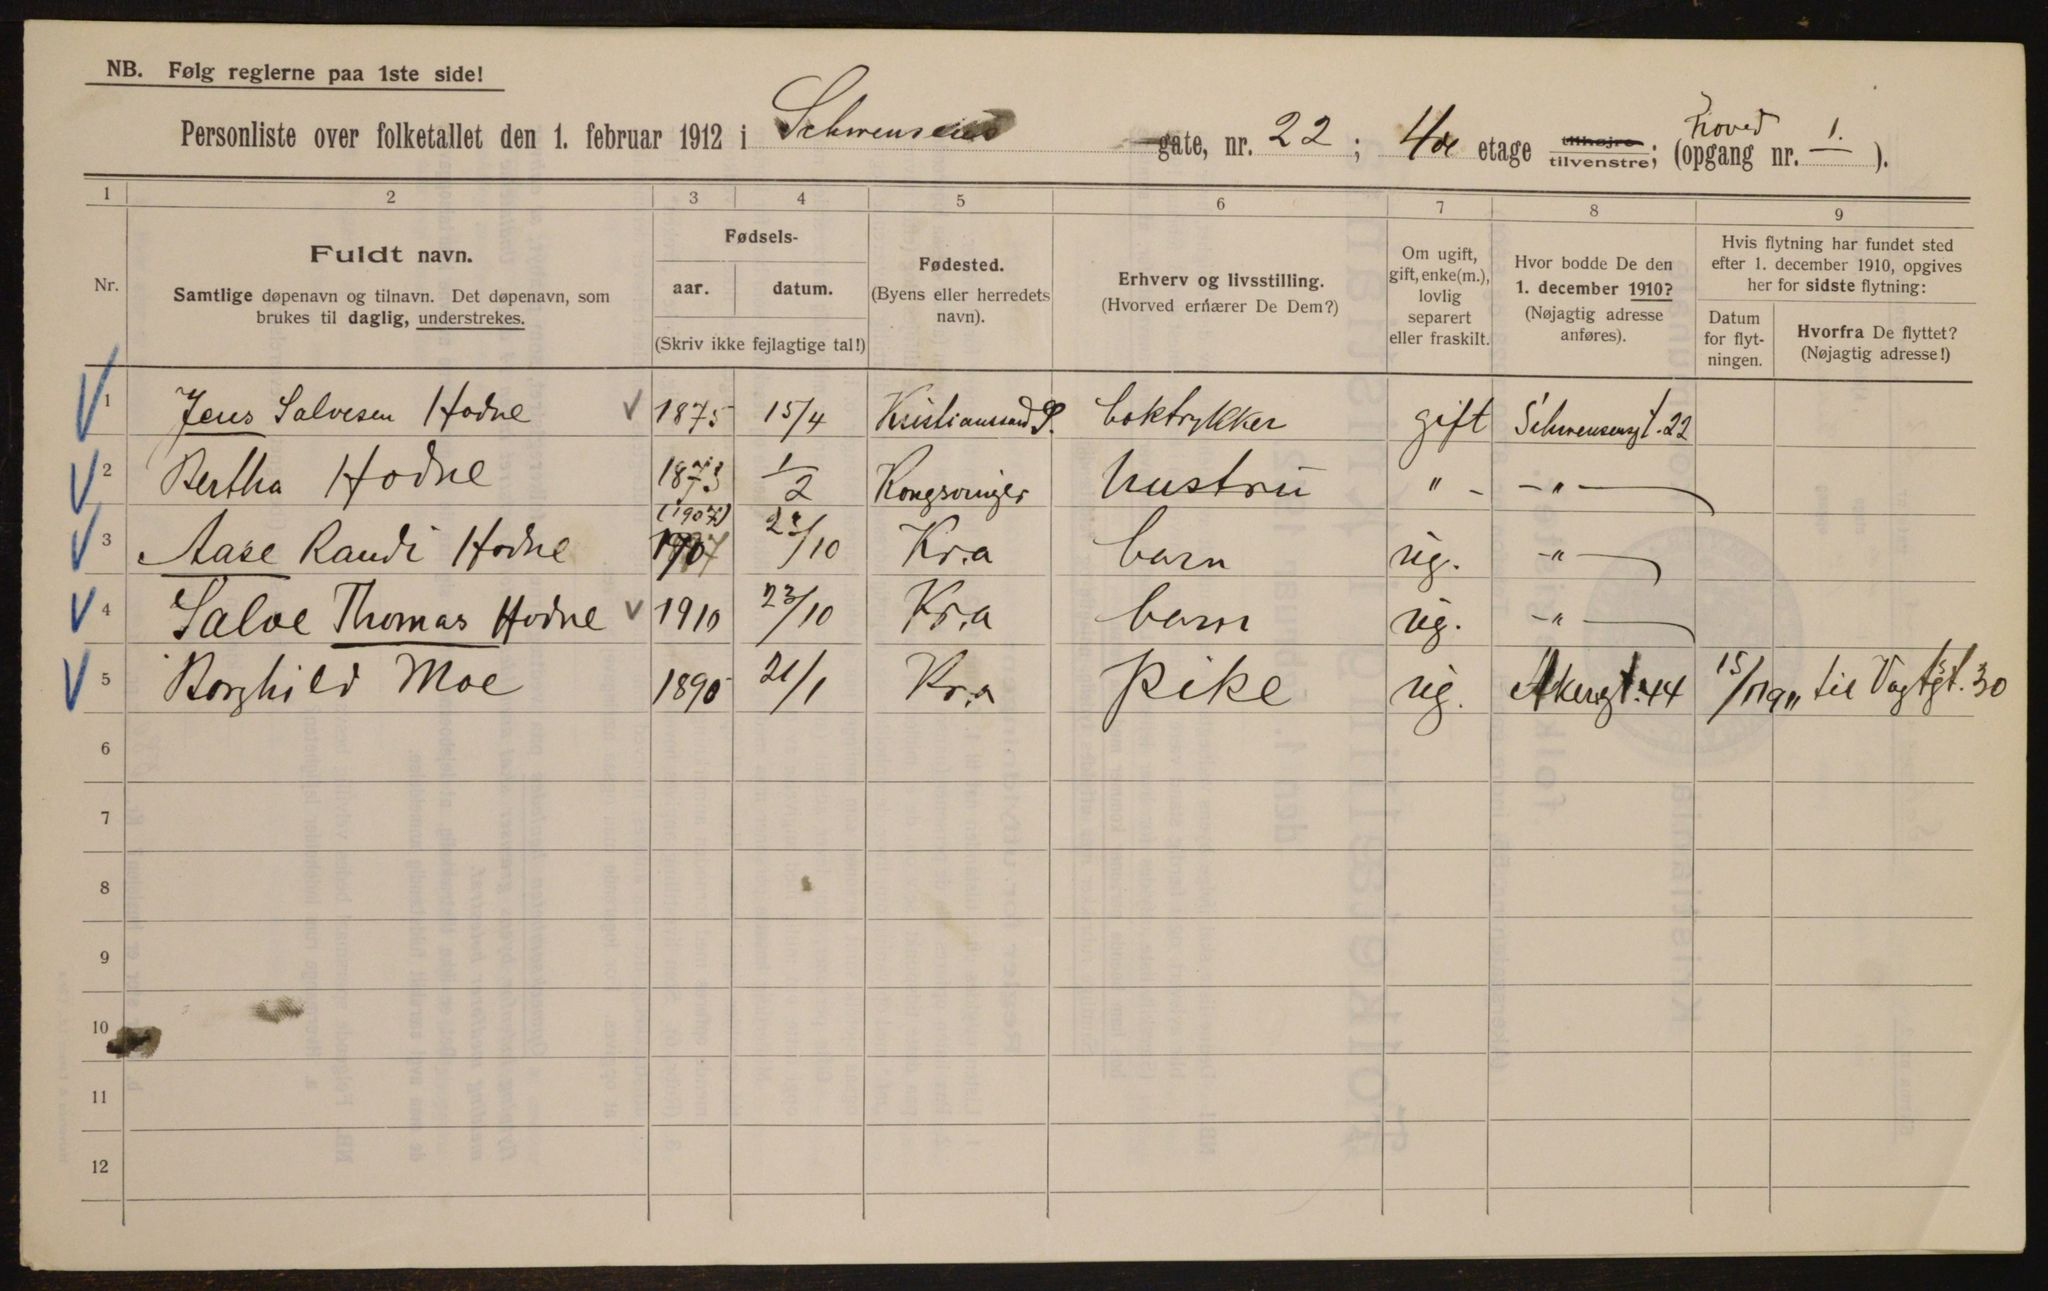 NB. Følg reglerne paa 1ste side!
Personliste over folketallet den 1. februar 1912 i Schwensens gate, nr. 22; 4de etage tilhøjre tilvenstre; (hoved opgang nr. 1.).
1 2 3 4 5 6 7 8 9
Nr.
Fuldt navn.
Samtlige døpenavn og tilnavn. Det døpenavn, som
brukes til daglig, understrekes.
Fødsels-
aar. datum.
(Skriv ikke fejlagtige tal!)
Fødested.
(Byens eller herredets
navn).
Erhverv og livsstilling.
(Hvorved ernærer De Dem?)
Om ugift,
gift, enke(m.),
lovlig
separert
eller fraskilt.
Hvor bodde De den
1. december 1910?
(Nøjagtig adresse
anføres).
Hvis flytning har fundet sted
efter 1. december 1910, opgives
her for sidste flytning:
Datum
for flyt-
ningen.
Hvorfra De flyttet?
(Nøjagtig adresse!)
1 Jens Salvesen Hodne 1875 15/4 Kristianssand S. boktrykker gift Schwensensgt. 22
2 Bertha Hodne 1873 1/2 Kongsvinger hustru " - - " -
3 Aase Randi Hodne (1907) 1907 2/10 Kr.a barn ug. - " -
4 Salve Thomas Hodne 1910 23/10 Kr.a barn ug. - " -
5 Borghild Moe 1890 21/1 Kr.a Pike ug. Akersgt. 44 15/1 1911 til Vogtsgt. 30
6
7
8
9
10
11
12